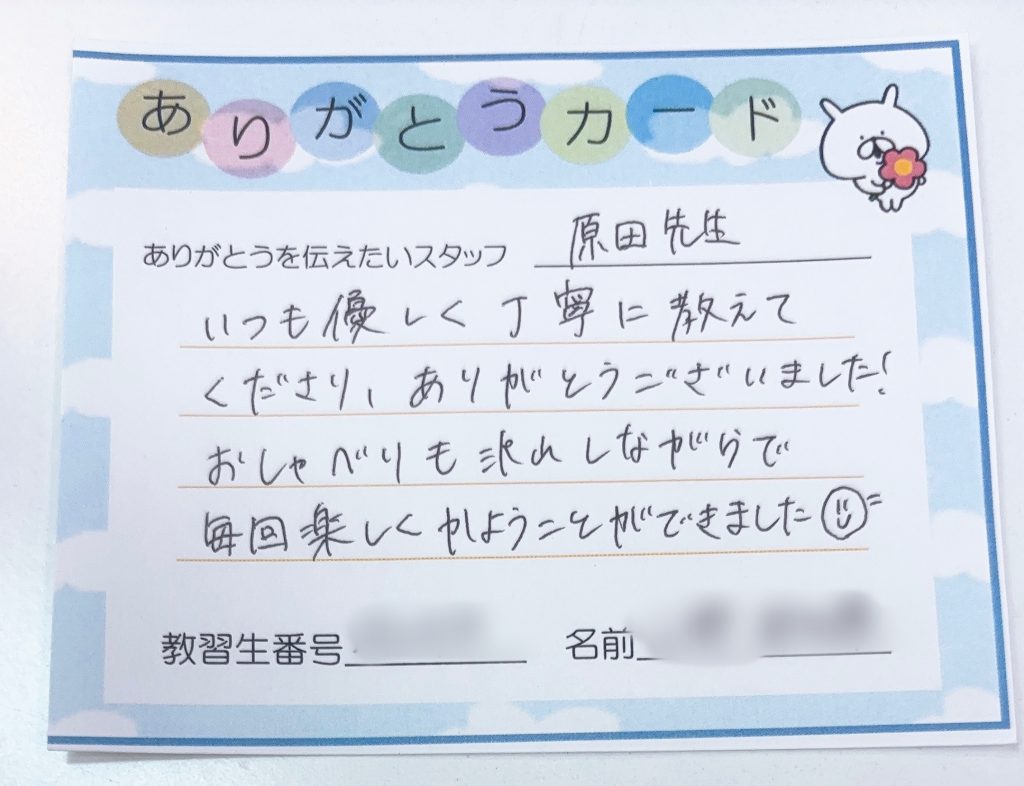 ありがとうカード
ありがとうを伝えたいスタッフ 原田先生
いつも優しく丁寧に教えて
くださり、ありがとうございました!
おしゃべりも沢山しながらで
毎回楽しくかようことができました
教習生番号
名前